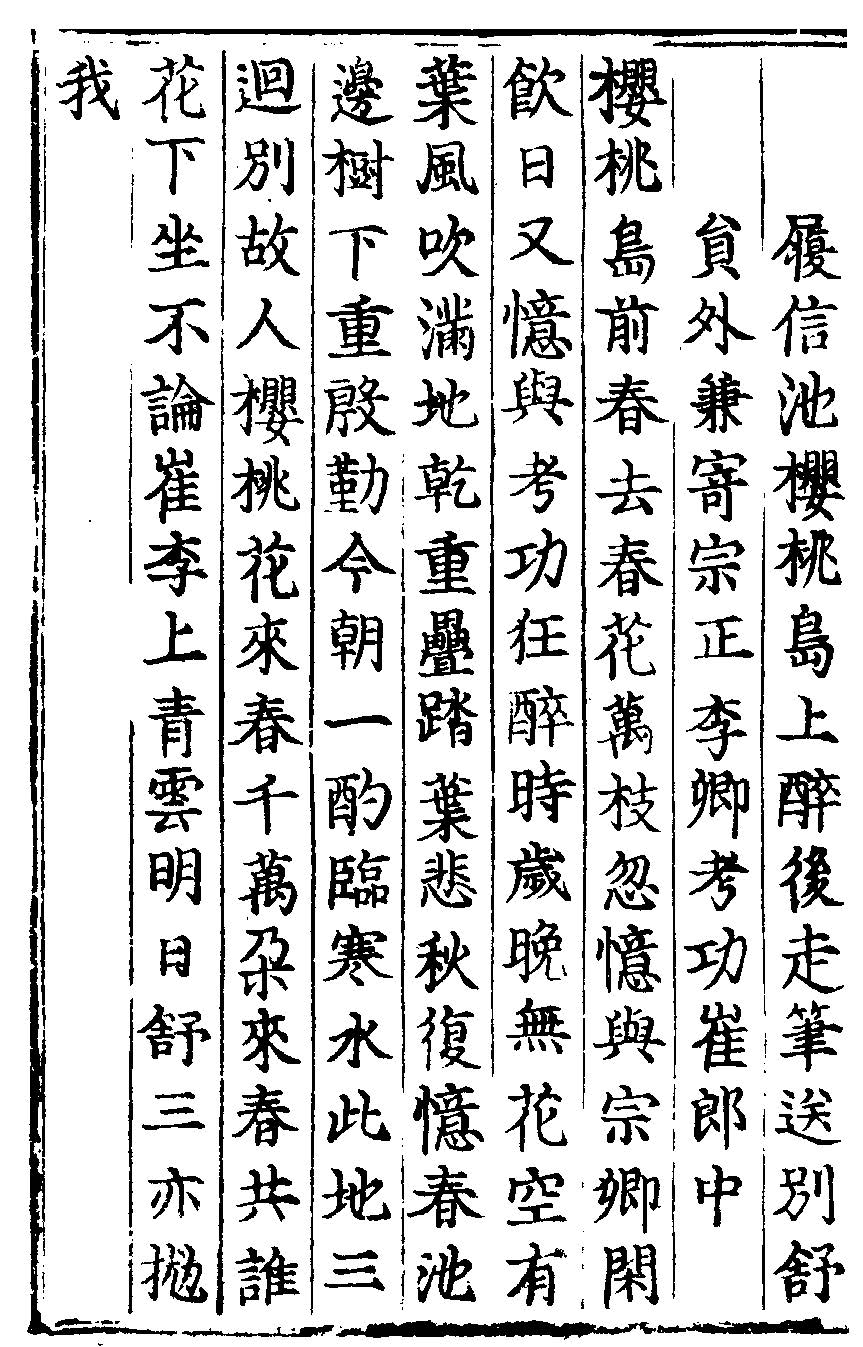 履信池櫻桃島上醉後走筆送別舒
員外兼寄宗正李卿考功崔郎中
櫻桃島前春去春花萬枝忽憶與宗卿閑
飲日又憶與考功狂醉時歲晚無花空有
葉風吹滿地乾重疊踏葉悲秋復憶春池
邊樹下重殷勤今朝一酌臨寒水此地三
迴別故人櫻桃花來春千萬朶來春共誰
花下坐不論崔李上青雲明日舒三亦抛
我